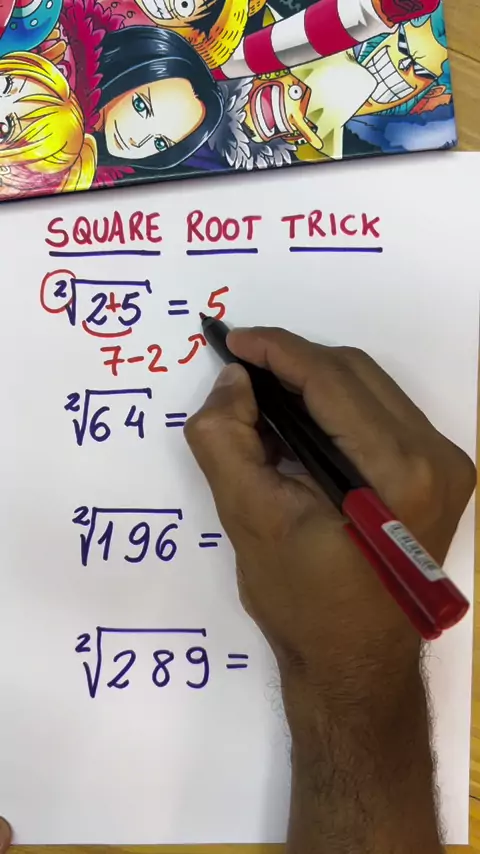 SQUARE ROOT TRICK
²√2+5 = 5
7-2
²√64 =
²√196 =
²√289 =